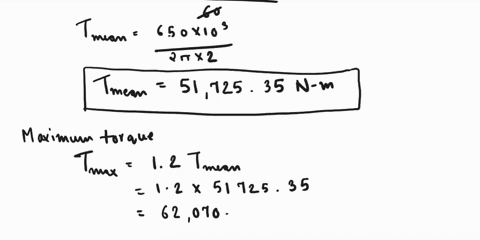 60
T mean = 650 x 10³
2π x 2
T mean = 51,725.35 N-m
Maximum torque
T max = 1.2 T mean
= 1.2 x 51725.35
= 62,070.